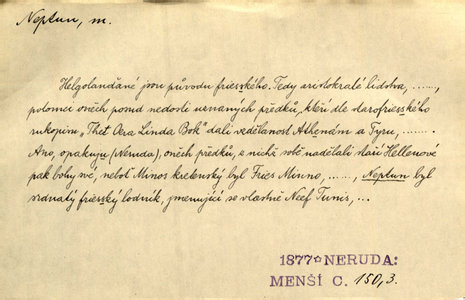 Neptun, m.
Helgolanďané jsou původu frieského. Tedy aristokraté lidstva, ......,
potomci oněch posud nedosti uznaných předků, kteří dle starofrieského
rukopisu „Thet Oera Linda Bok" dali vzdělanost Athenám a Tyru, ........
Ano, opakuju (Neruda), oněch předků, z nichž sobě nadělali staří Hellenové
pak bohy své, neboť Minos kretenský byl Fries Minno, ......, Neptun byl
srdnatý frieský lodník, jmenující se vlastně Neef Tunis, ...
1877 NERUDA:
MENŠÍ C. 150,3.